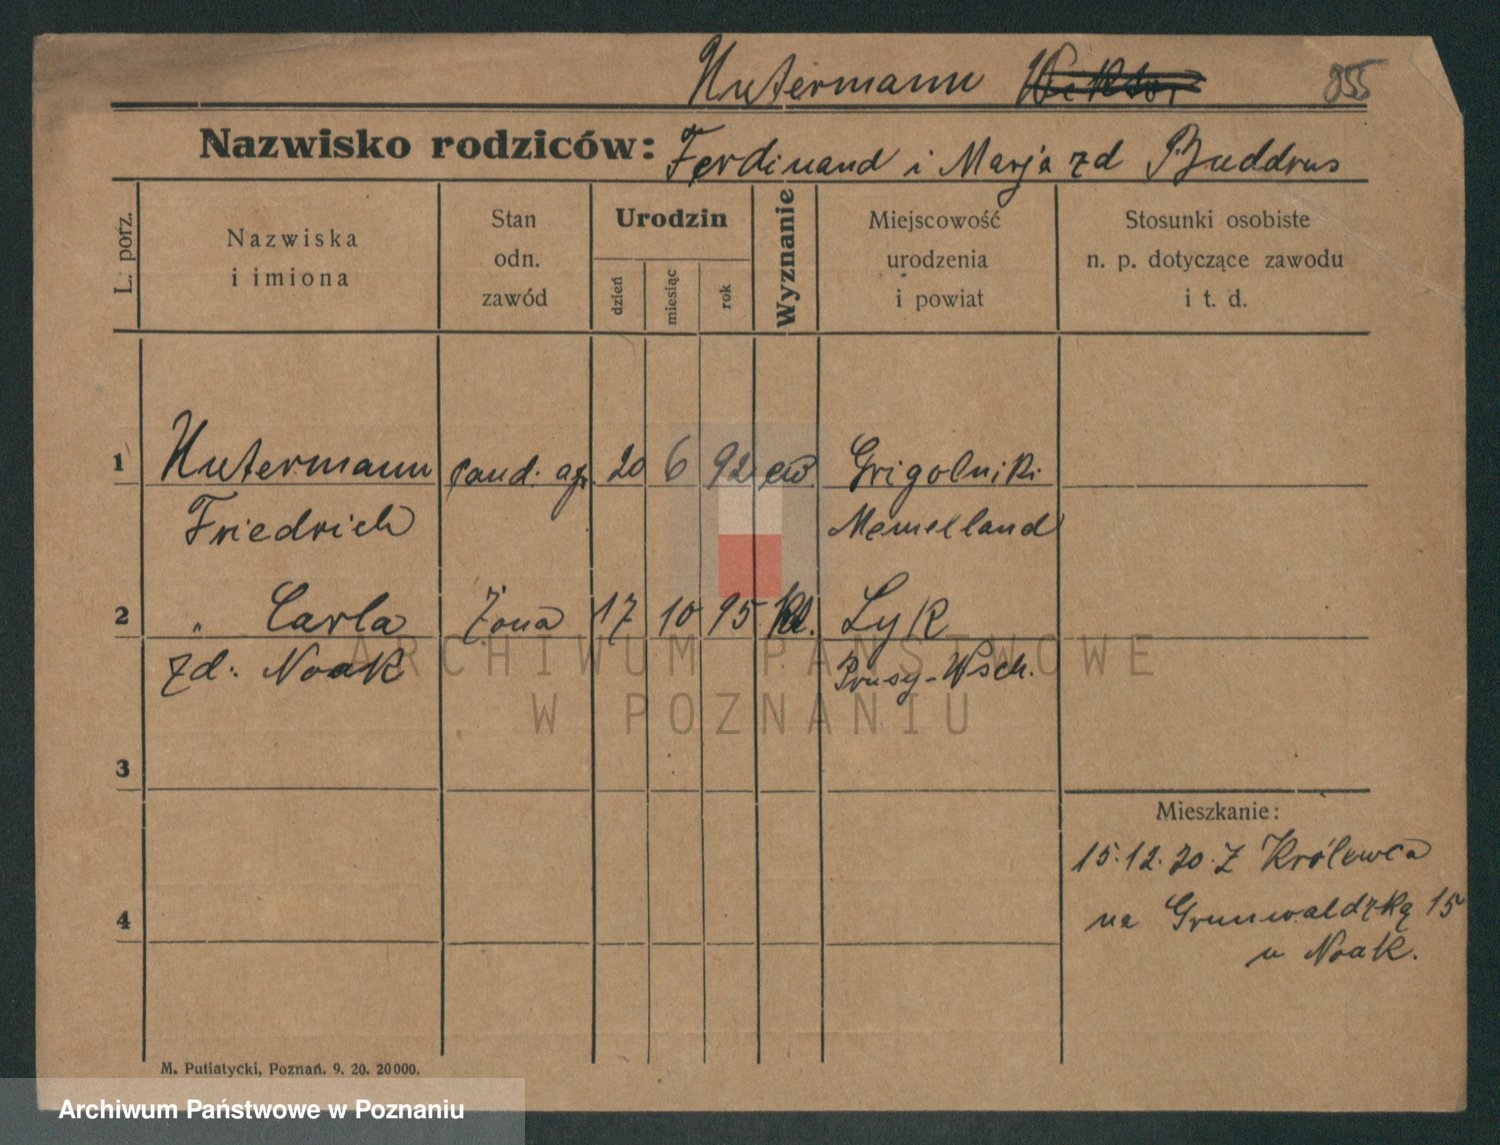 Hutermann Wiktor 855
Nazwisko rodziców: Ferdinand i Marja zd Buddrus
L. porz.
Nazwiska
i imiona
Stan
odn.
zawód
Urodzin
dzień
miesiąc
rok
Wyznanie
Miejscowość
urodzenia
i powiat
Stosunki osobiste
n. p. dotyczące zawodu
i t. d.
1 Hutermann cand. agr. 20 6 92 ew. Grigolniki
Friedrich Memelland
2 " Carla Żona 17 10 95 kt. Lyk
zd. Noak Prusy-Wsch.
3
4
Mieszkanie:
15.12.20. Z Królewca
na Grunwaldzką 15
u Noak.
M. Putiatycki, Poznań. 9. 20. 20000.
ARCHIWUM PAŃSTWOWE
W POZNANIU
Archiwum Państwowe w Poznaniu